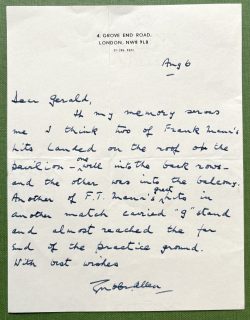 4, GROVE END ROAD,
LONDON, NW8 9LB
Aug 6
Dear Gerald,
If my memory serves
me I think two of Frank Mann's
hits landed on the roof of the
pavilion - one well into the back rows -
and the other was into the balcony.
Another of F.T. Mann's great hits in
another match carried "g" stand
and almost reached the far
end of the practice ground.
With best wishes